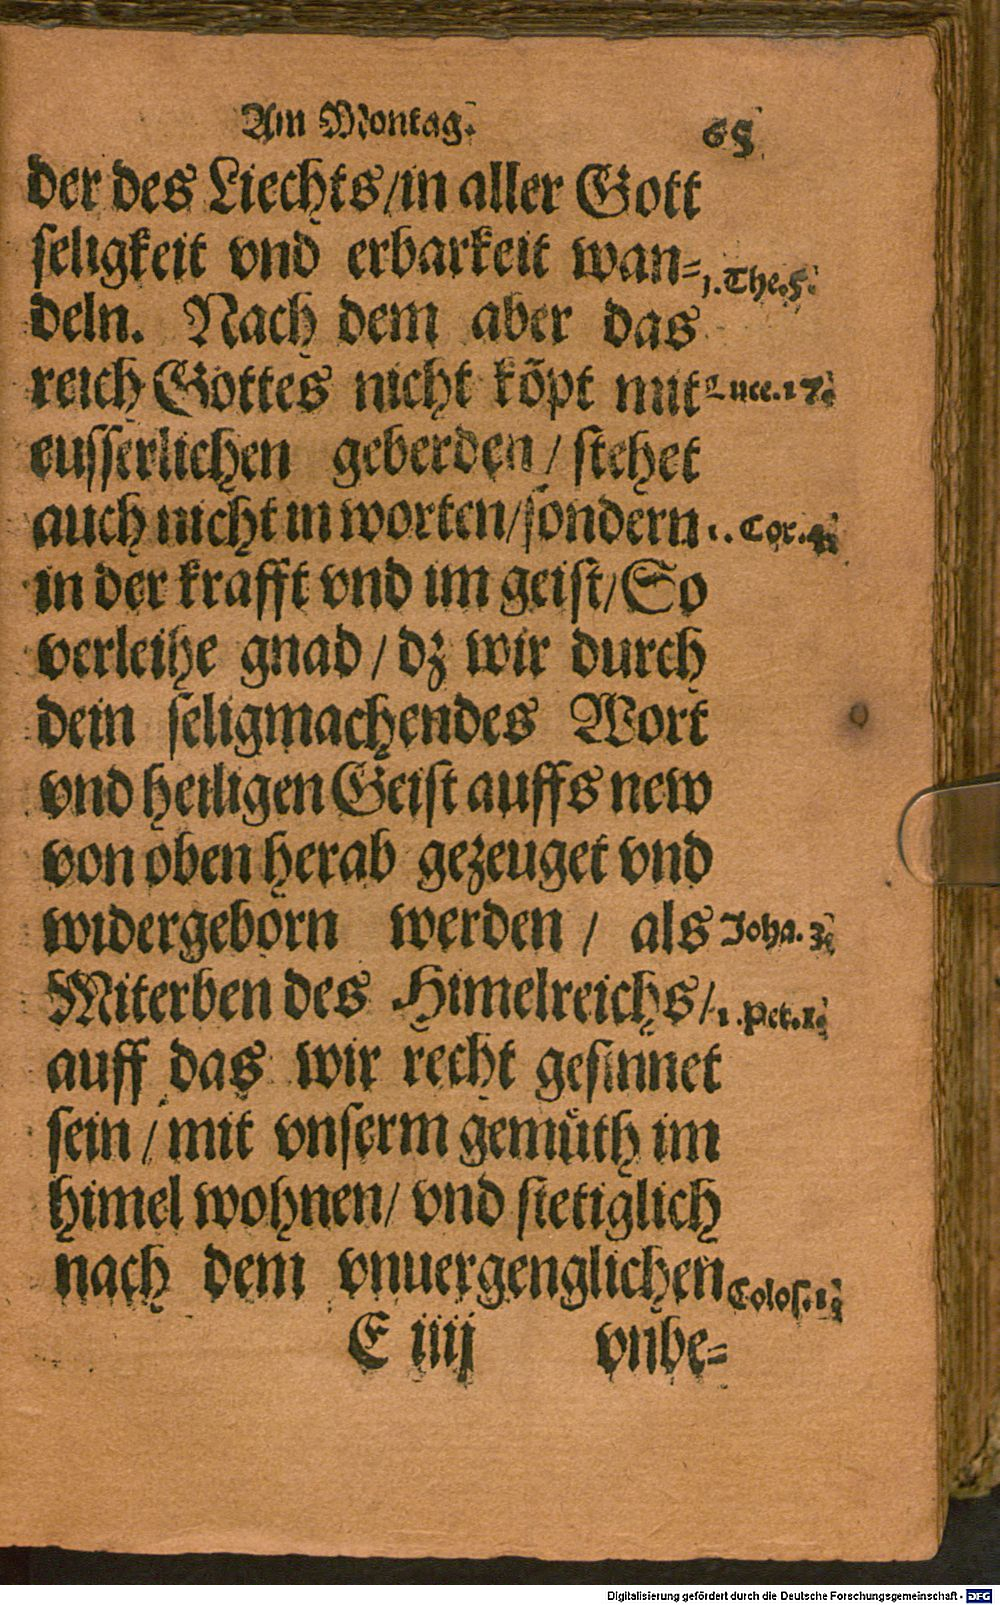 Am Montag. 65
der des Liechts/in aller Gott
seligkeit vnd erbarkeit wan=
1. The. 5.
deln. Nach dem aber das
reich Gottes nicht kõpt mit
Luce. 17.
eusserlichen geberden / stehet
auch nicht in worten/sondern
1. Cor. 4.
in der krafft vnd im geist/ So
verleihe gnad / dz wir durch
dein seligmachendes Wort
vnd heiligen Geist auffs new
von oben herab gezeuget vnd
widergeborn werden / als
Joha. 3.
Miterben des Himelreichs/
1. Pet. 1.
auff das wir recht gesinnet
sein / mit vnserm gemuͤth im
himel wohnen/ vnd stetiglich
nach dem vnuergenglichen
Colos. 1.
E iiij vnbe=
Digitalisierung gefördert durch die Deutsche Forschungsgemeinschaft - DFG